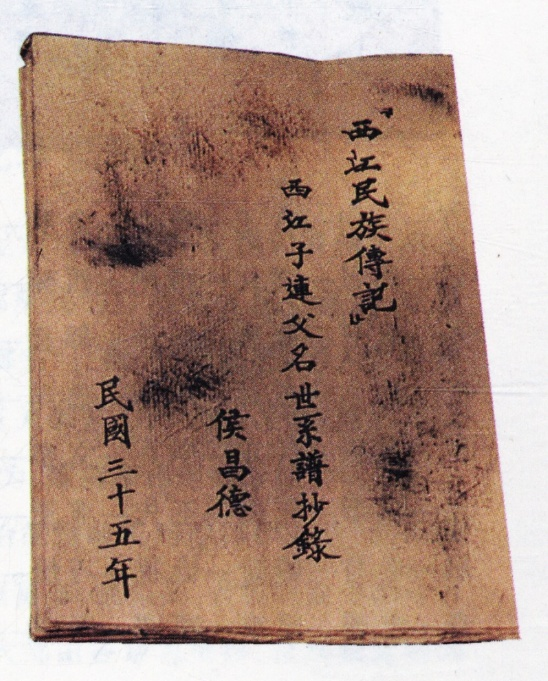 "西江民族傳記"
西江子連父名世系譜抄錄
侯昌德
民國三十五年